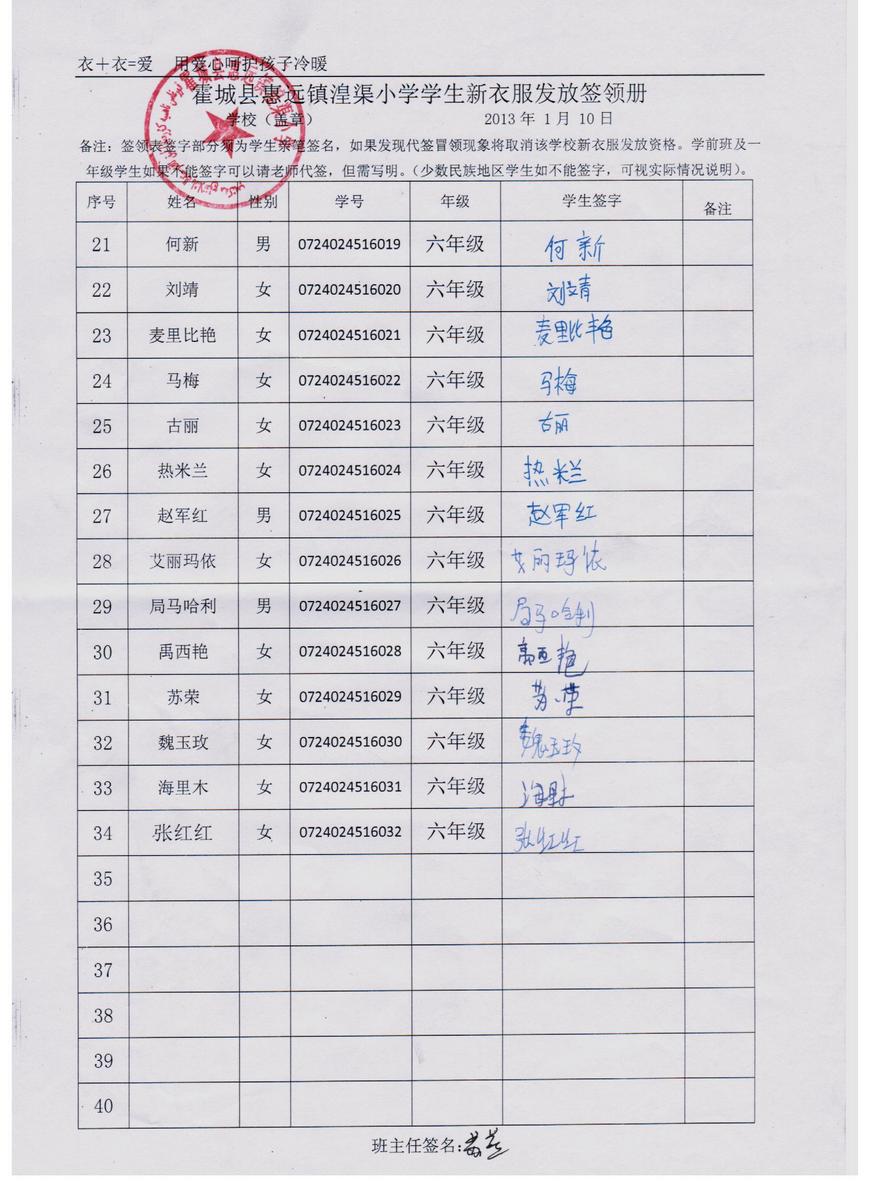 衣＋衣=爱 用爱心呵护孩子冷暖
霍城县惠远镇湟渠小学学生新衣服发放签领册
学校（盖章） 2013 年 1 月 10 日
备注：签领表签字部分须为学生亲笔签名，如果发现代签冒领现象将取消该学校新衣服发放资格。学前班及一
年级学生如果不能签字可以请老师代签，但需写明。（少数民族地区学生如不能签字，可视实际情况说明）。
序号 姓名 性别 学号 年级 学生签字 备注
21 何新 男 0724024516019 六年级 何新
22 刘靖 女 0724024516020 六年级 刘靖
23 麦里比艳 女 0724024516021 六年级 麦里比艳
24 马梅 女 0724024516022 六年级 马梅
25 古丽 女 0724024516023 六年级 古丽
26 热米兰 女 0724024516024 六年级 热米兰
27 赵军红 男 0724024516025 六年级 赵军红
28 艾丽玛依 女 0724024516026 六年级 艾丽玛依
29 局马哈利 男 0724024516027 六年级 局马哈利
30 禹西艳 女 0724024516028 六年级 禹西艳
31 苏荣 女 0724024516029 六年级 苏荣
32 魏玉玫 女 0724024516030 六年级 魏玉玫
33 海里木 女 0724024516031 六年级 海里木
34 张红红 女 0724024516032 六年级 张红红
35
36
37
38
39
40
班主任签名: